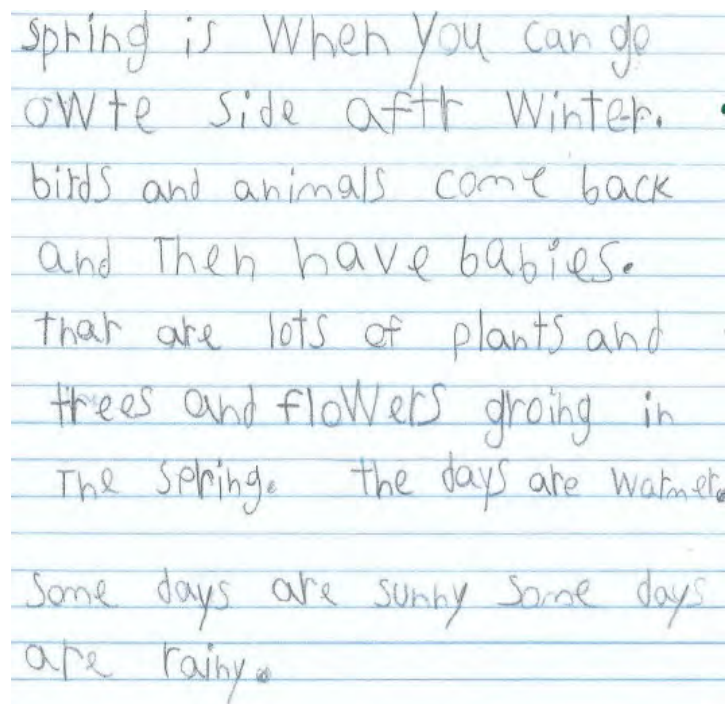 spring is When you can go
owte side aftr Winter.
birds and animals come back
and Then have babies.
thar are lots of plants and
trees and floWers groing in
The spring. the days are warmer.
Some days are sunny some days
are rainy.